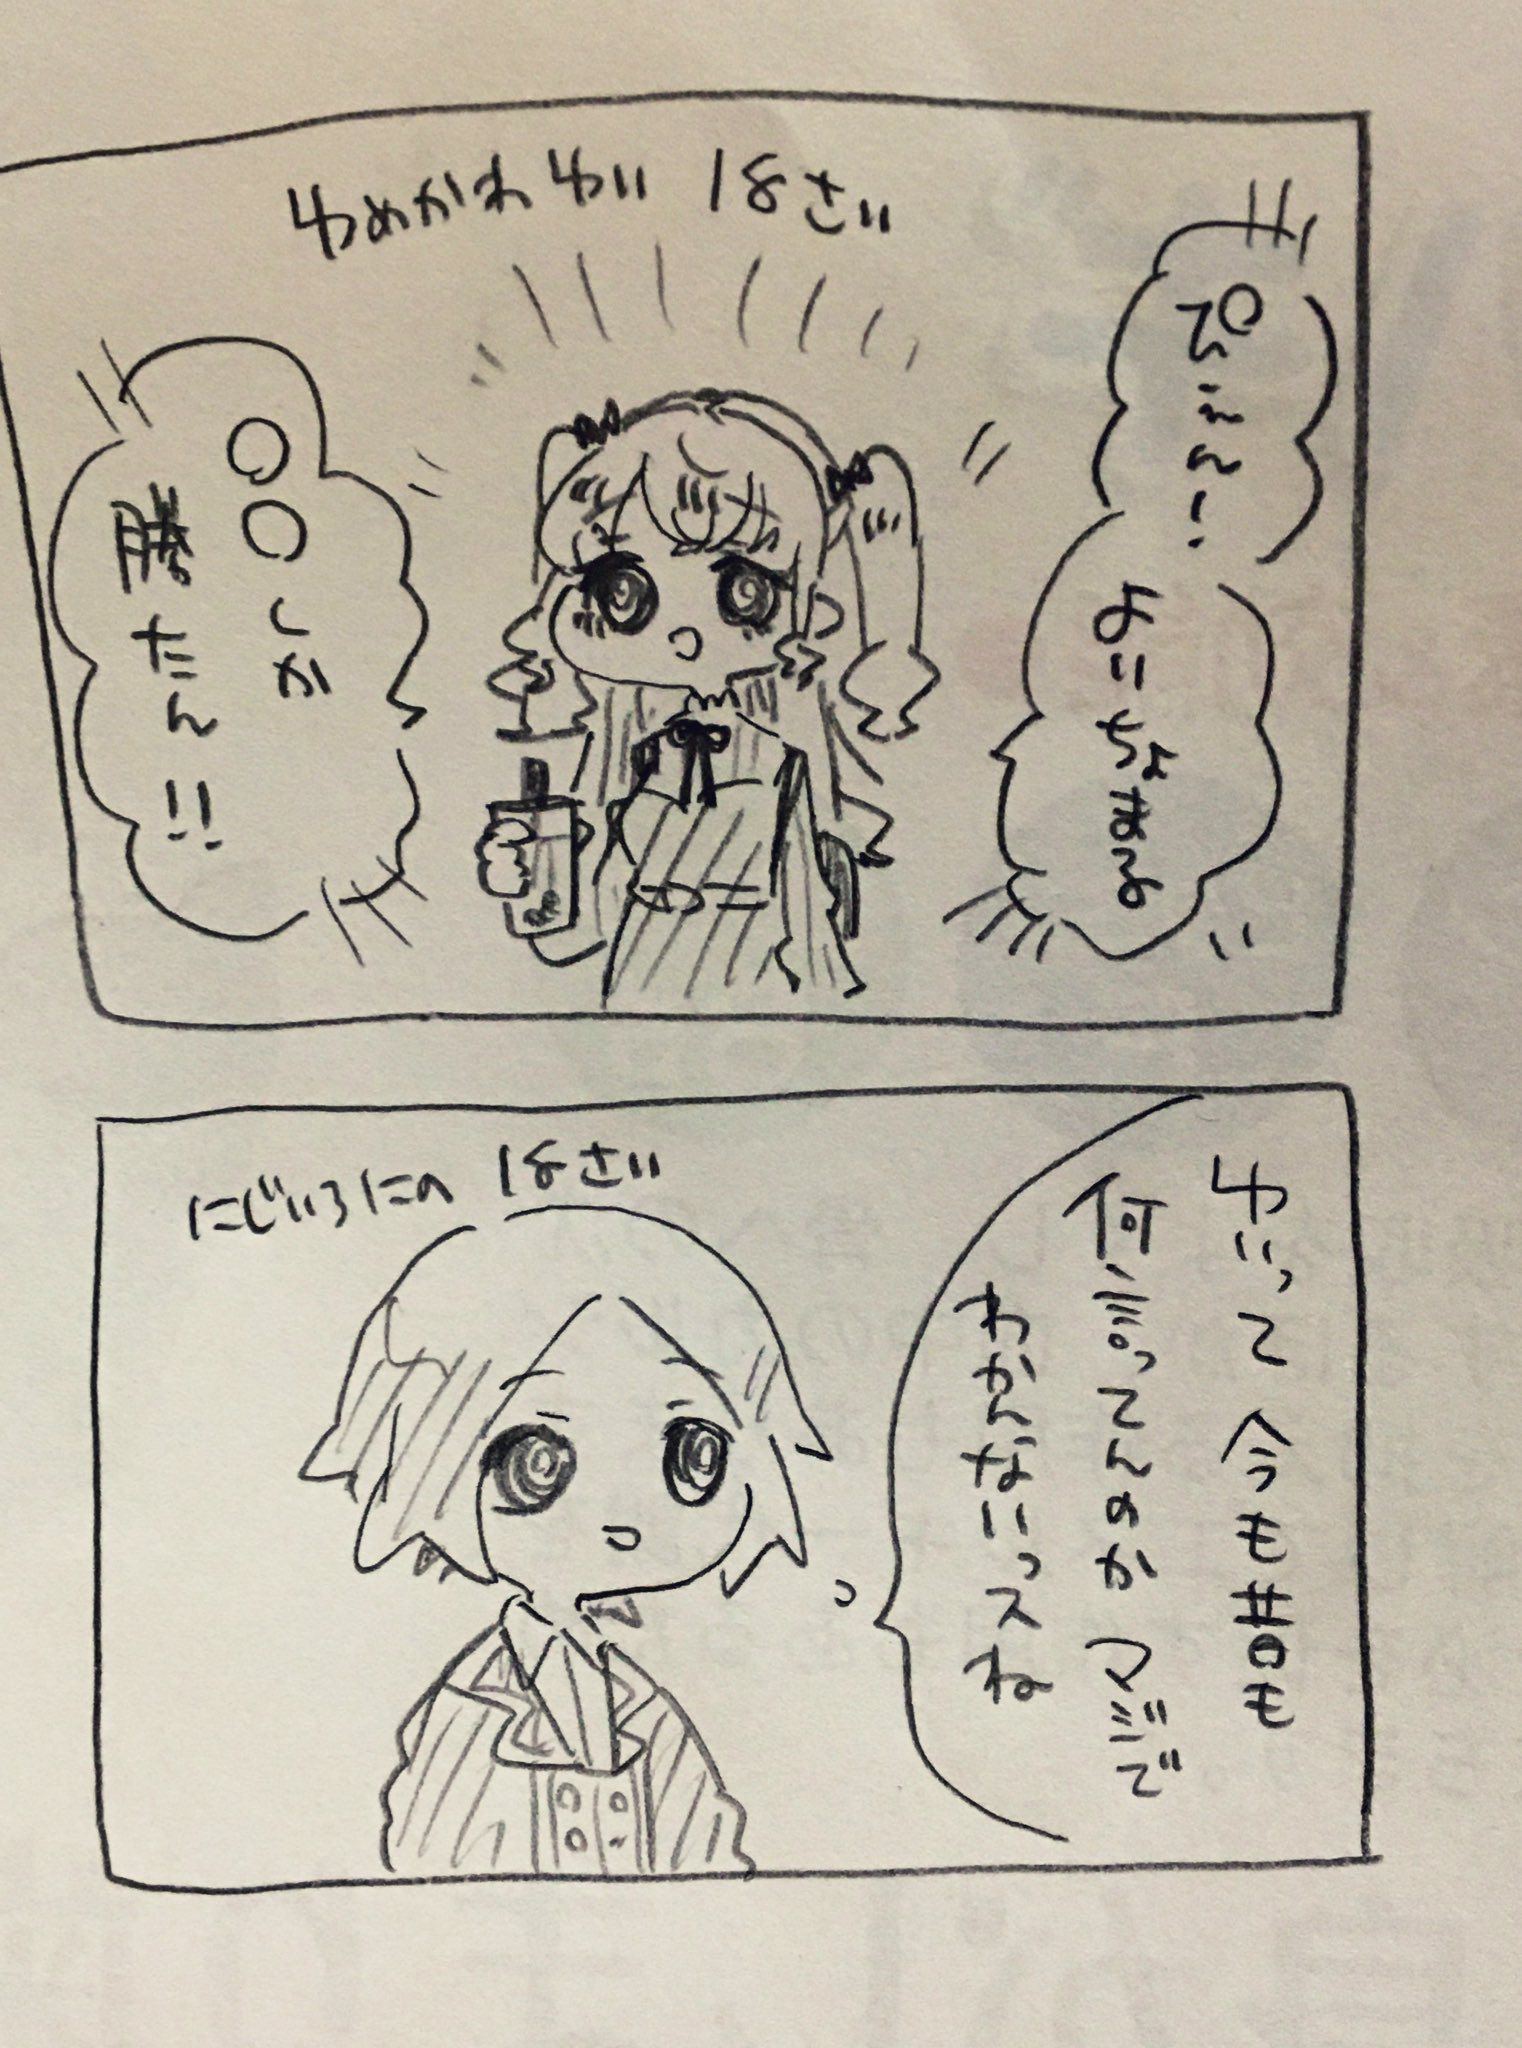 ゆめかわゆい 18さい
ぴえん!
よいちょまる
〇〇しか
勝たん!!
にじいろにの 18さい
ゆいって 今も昔も
何言ってんのか マジで
わかんないっスね